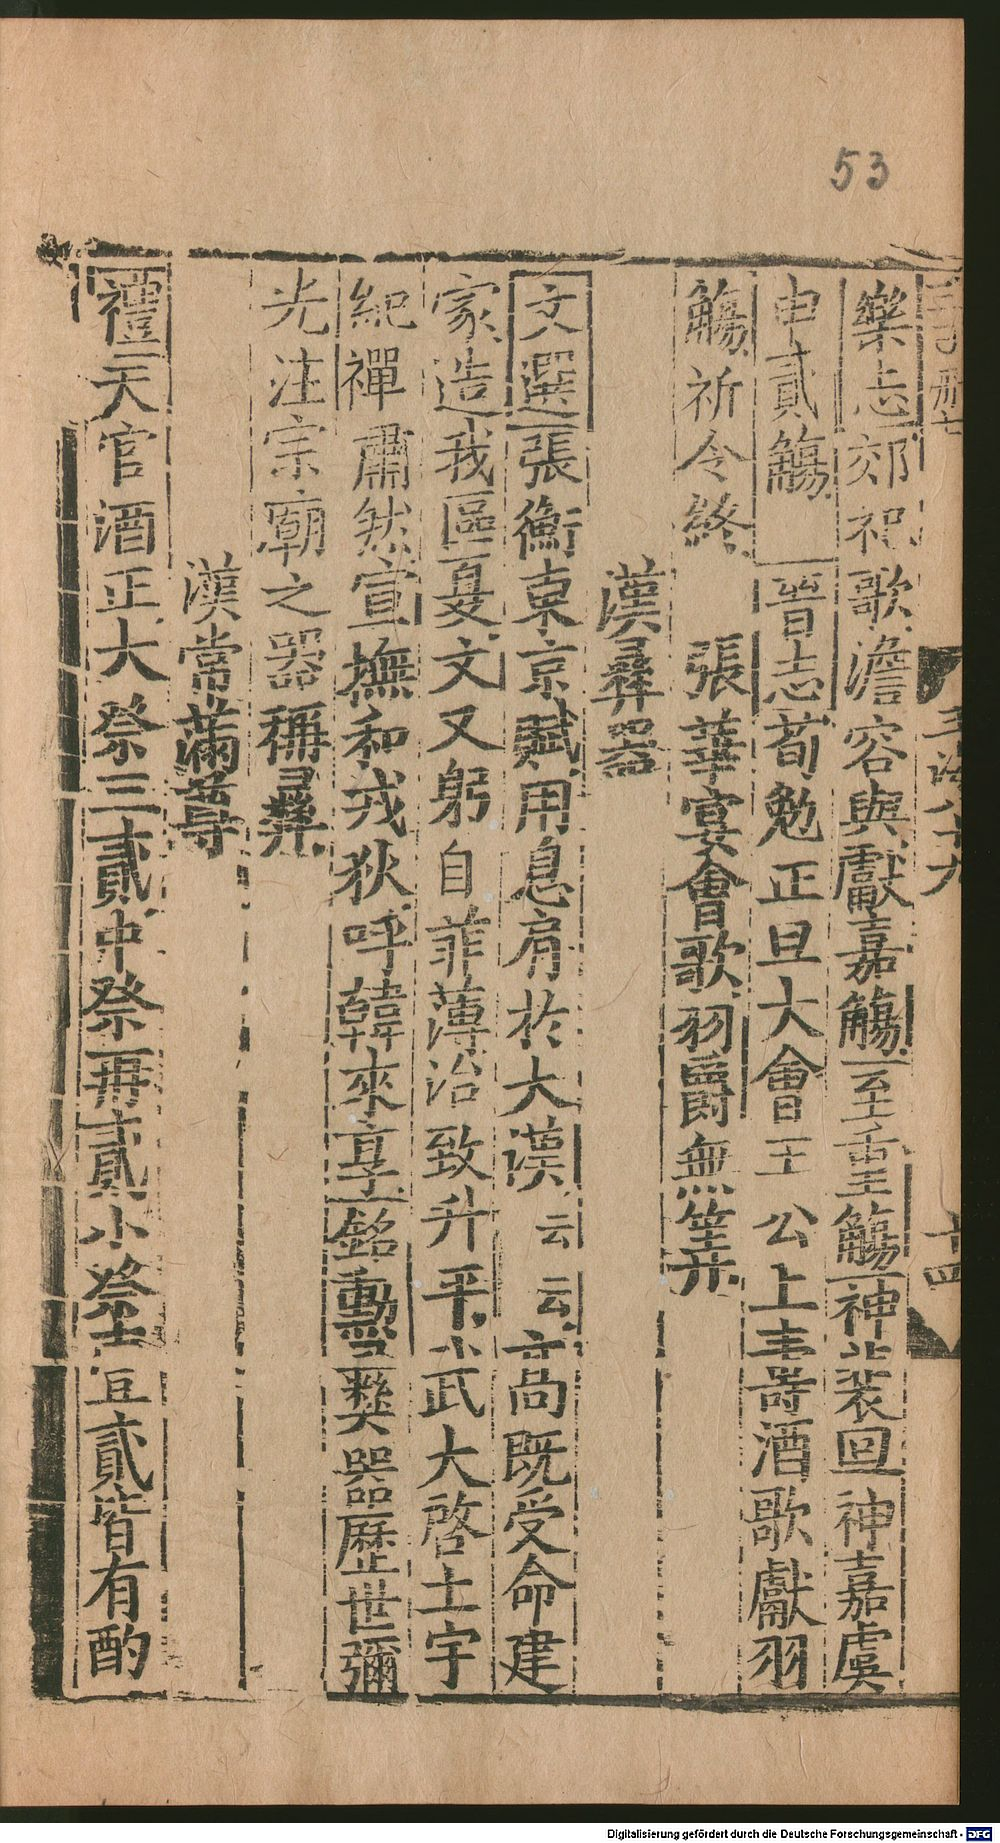 53
玉海八十九
十四
樂志郊祀歌澹容與獻嘉觴至重觴神裴回神嘉虞
申貳觴 晉志荀勉正旦大會王公上壽酒歌獻羽
觴祈令終 張華宴會歌羽爵無筭
漢彝器
文選張衡東京賦用息肩於大漢云云高既受命建
家造我區夏文又躬自菲薄治致升平武大啓土宇
紀禪肅然宣撫和戎狄呼韓來享銘勳彝器歷世彌
光注宗廟之器稱彝
漢常滿尊
禮天官酒正大祭三貳中祭再貳小祭壹貳皆有酌
Digitalisierung gefördert durch die Deutsche Forschungsgemeinschaft - DFG